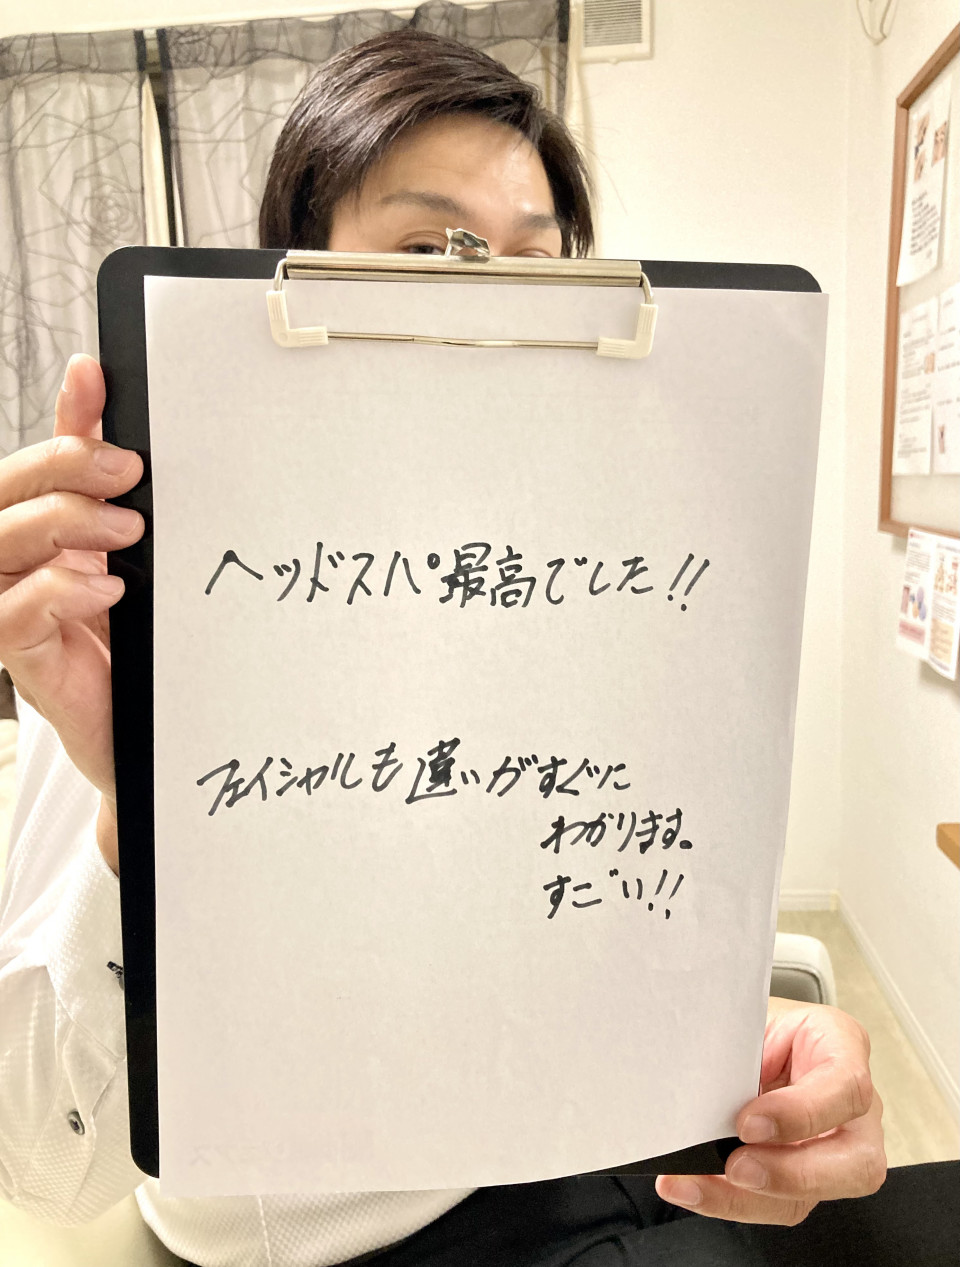 ヘッドスパ最高でした!!
フェイシャルも違いがすぐに
わかります。
すごい!!